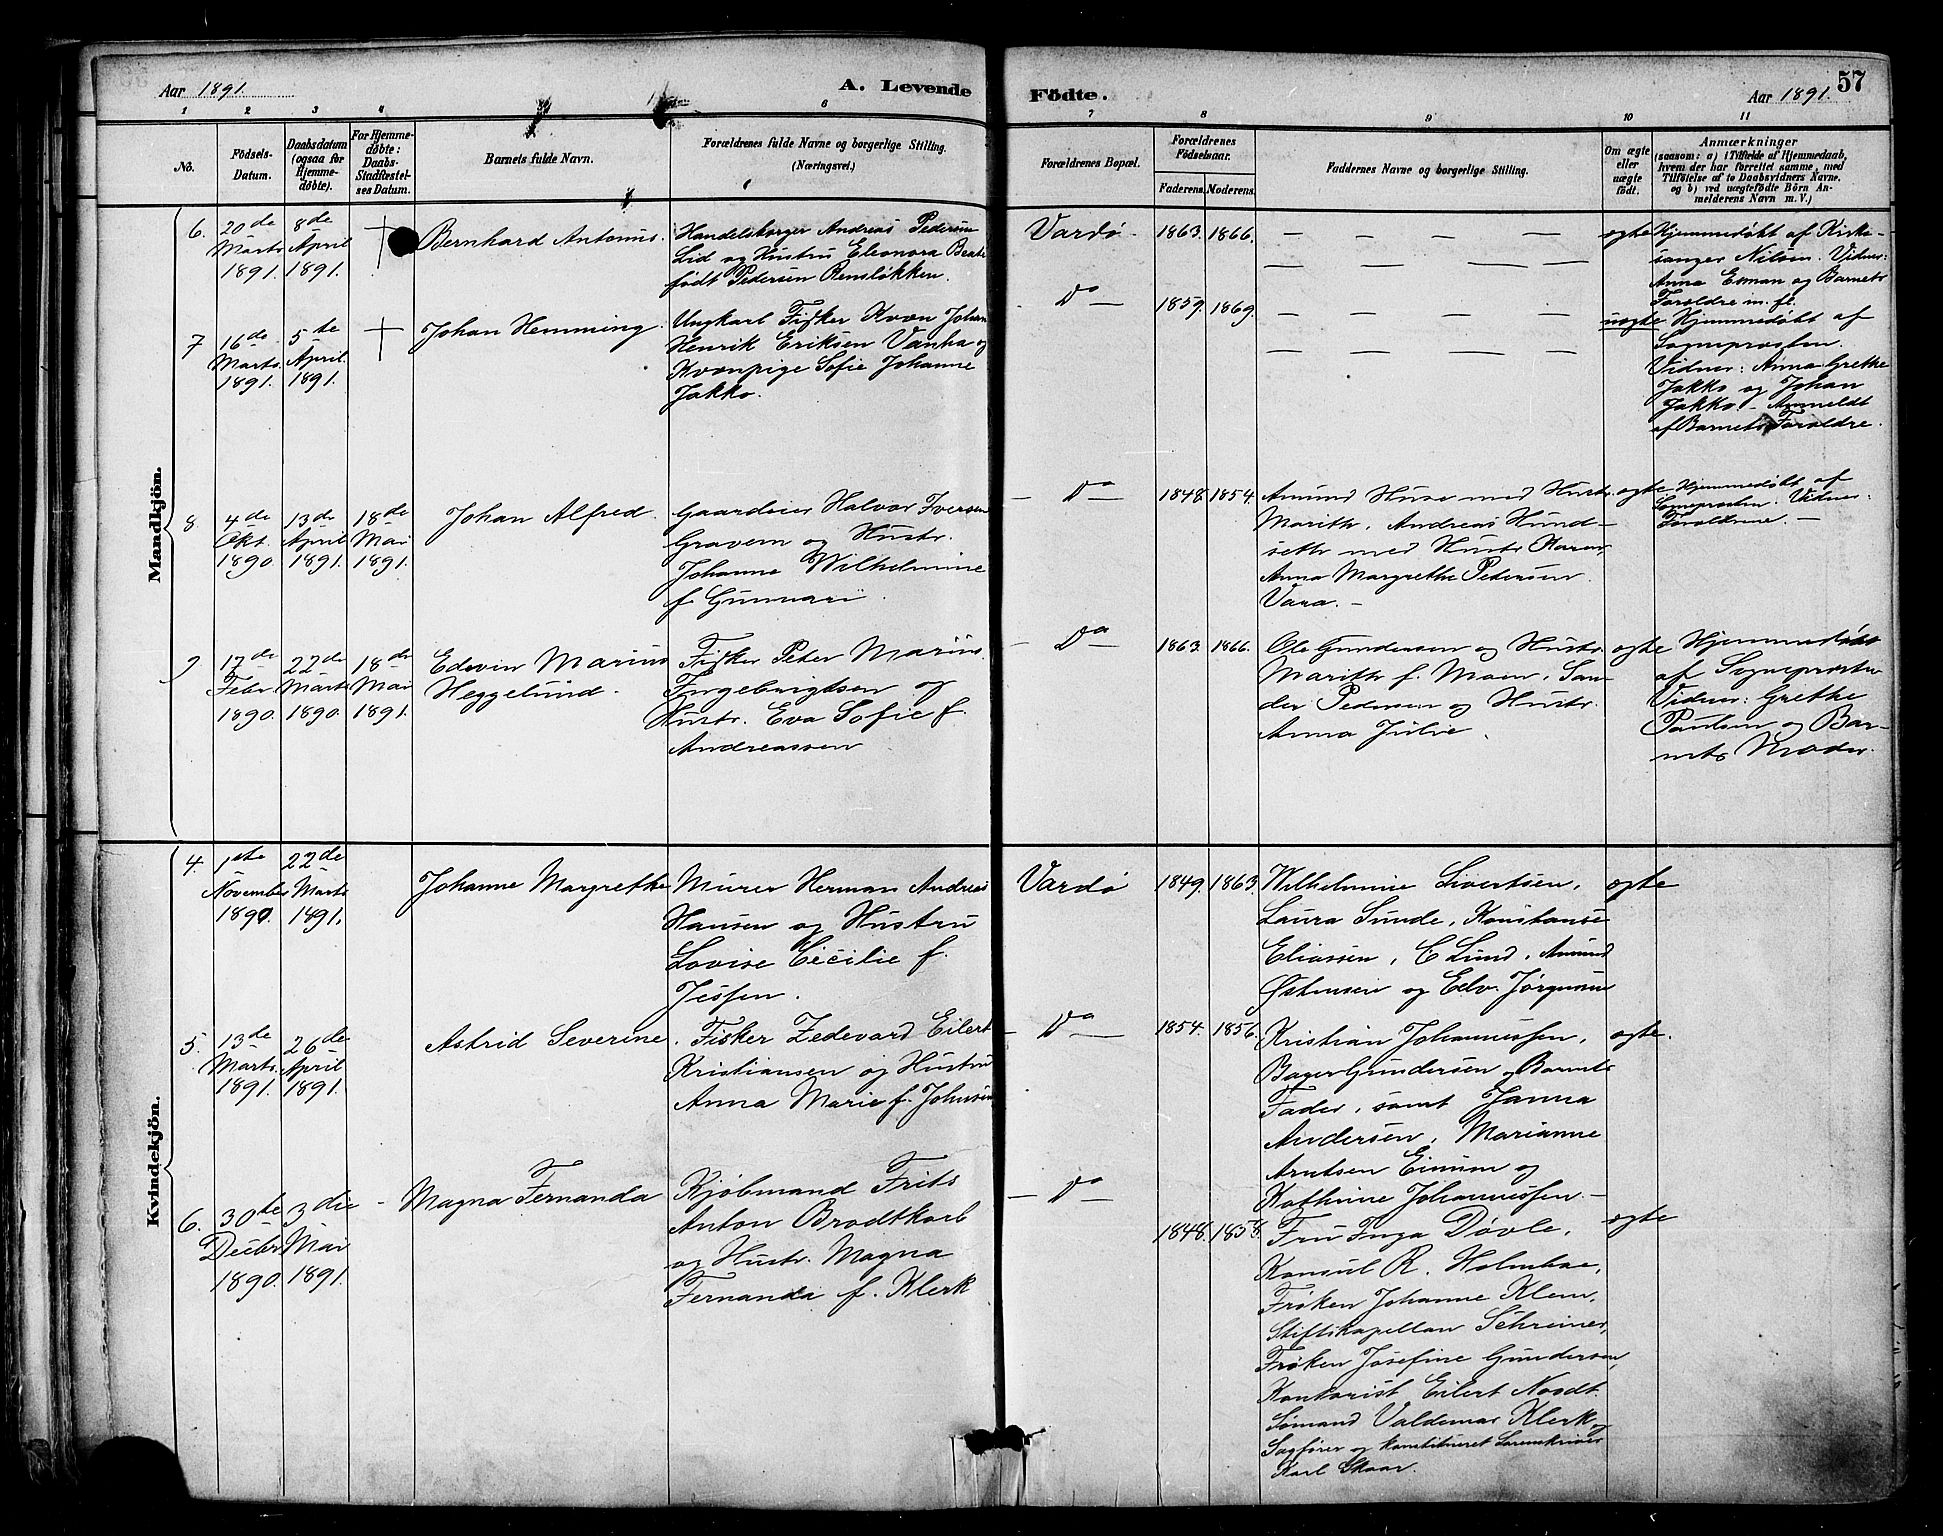 Aar 1891.
A. Levende
Födte.
Aar 1891.
57
1 2 3 4 6 7 8 9 10 11
No.
Födsels-
Datum.
Daabsdatum
(ogsaa for
Hjemme-
døbte).
For Hjemme-
døbte:
Daabs-
Stadfæstel-
ses Datum.
Barnets fulde Navn.
Forældrenes fulde Navne og borgerlige Stilling.
(Næringsvei.)
Forældrenes Bopæl.
Forældrenes
Födselsaar.
Faderens. Moderens.
Faddernes Navne og borgerlige Stilling.
Om ægte
eller
uægte
födt.
Anmærkninger
(saasom: a) i Tilfælde af Hjemmedaab,
hvem der har forrettet samme, med
Tilføielse af to Daabsvidners Navne,
og b) ved uægtefödte Börn An-
melderens Navn m. V.)
Mandkjön.
6.
20de
Marts
1891.
8de
April
1891.
Bernhard Antonius.
Handelsborger Andreas Pedersen
Lid og Hustru Eleonora Beate
født Pedersen Rensløkken.
Vardø.
1863. 1866.
ægte
Hjemmedøbt af Kirke-
sanger Nilsen. Vidner:
Anna Esman og Barnets
Foræ̈ldre m. fl.
7
16de
Marts.
1891.
5te
April
1891.
Johan Hemming.
Ungkarl Fisker Kvæn Johan
Henrik Eriksen Vanha og
Kvænpige Sofie Johanne
Jakko.
Do
1859. 1869.
uægte
Hjemmedøbt af
Sogneprosten.
Vidner: Anna Grethe
Jakko og Johan
Jakko - Anmeldt
af Barnets Forældre.
8.
4de
Okt.
1890
13de
April
1891.
18de
Mai
1891.
Johan Alfred.
Gaardeier Halvor Iversen
Gravem og Hustr.
Johanne Wilhelmine
f. Gunnari.
Do
1848. 1854.
Amund Huse med Hustr.
Marith, Andreas Hund-
seth med Hustr. Karen,
Anna Margrethe Pedersen
Vara. -
ægte
Hjemmedøbt af
Sogneprosten. Vidner:
Forældrene. -
9
17de
Febr
1890
22de
Marts
1890.
18de
Mai
1891.
Edevin Marius
Heggelund.
Fisker Peter Marius
Ingebrigtsen og
Hustr. Eva Sofie f.
Andreassen
Do
1863. 1866.
Ole Gundersen og Hustr.
Marith f. Moen, San-
der Pedersen og Hustr.
Anna Julie.
ægte
Hjemmedøbt
af Sogneprosten
Vidner: Grethe
Paulsen og Bar-
nets Moder.
Kvindekjön.
4.
1ste
November
1890.
22de
Marts
1891.
Johanne Margrethe
Murer Herman Andreas
Hansen og Hustru
Lovise Cecilie f.
Jessen.
Vardø
1849. 1863.
Wilhelmine Sivertsen,
Laura Sunde, Konstanse
Eliassen, C Lund, Amund
Østensen og Edv. Jørgensen
ægte
5.
13de
Marts.
1891.
26de
April
1891.
Astrid Severine.
Fisker Zedevard Eilert
Kristiansen og Hustru
Anna Marie f. Johnsen
Do
1854. 1856.
Kristian Johannessen,
Bager Gundersen og Barnets
Fader, samt Janna
Andersen, Marianne
Arntsen Einum og
Kathrine Johannessen. -
ægte.
6.
30te
Decbr
1890.
3die
Mai
1891.
Magna Fernanda
Kjøbmand Frits
Anton Brodtkorb
og Hustr. Magna
Fernanda f. Klerk
Do
1848. 1858.
Fru Inga Døvle,
Konsul R. Holmboe,
Frøken Johanne Klem,
Stiftskapellan Schreiner,
Frøken Josefine Gundersen,
Kontorist Eilert Noodt.
Sømand Valdemar Klerk, og
Sagfører og konstitueret Sorenskriver
Karl Skaar.
ægte